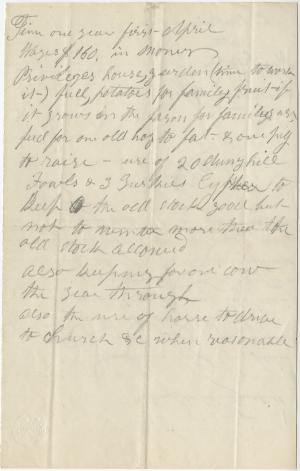 Time one year first April
Wages $160. in money
Privileges house, garden (time to work
it) fuel, potatoes for family fruit if
it grows on the farm for family use
feed for one old hog to fat & one pig
to raise - use of 20 Dunghill
Fowls & 3 Turkies to
keep the old stock good but
not to more than the
old stock allowed
also keeping for one cow
the year through
also the use of horse to drive
to church &c when reasonable